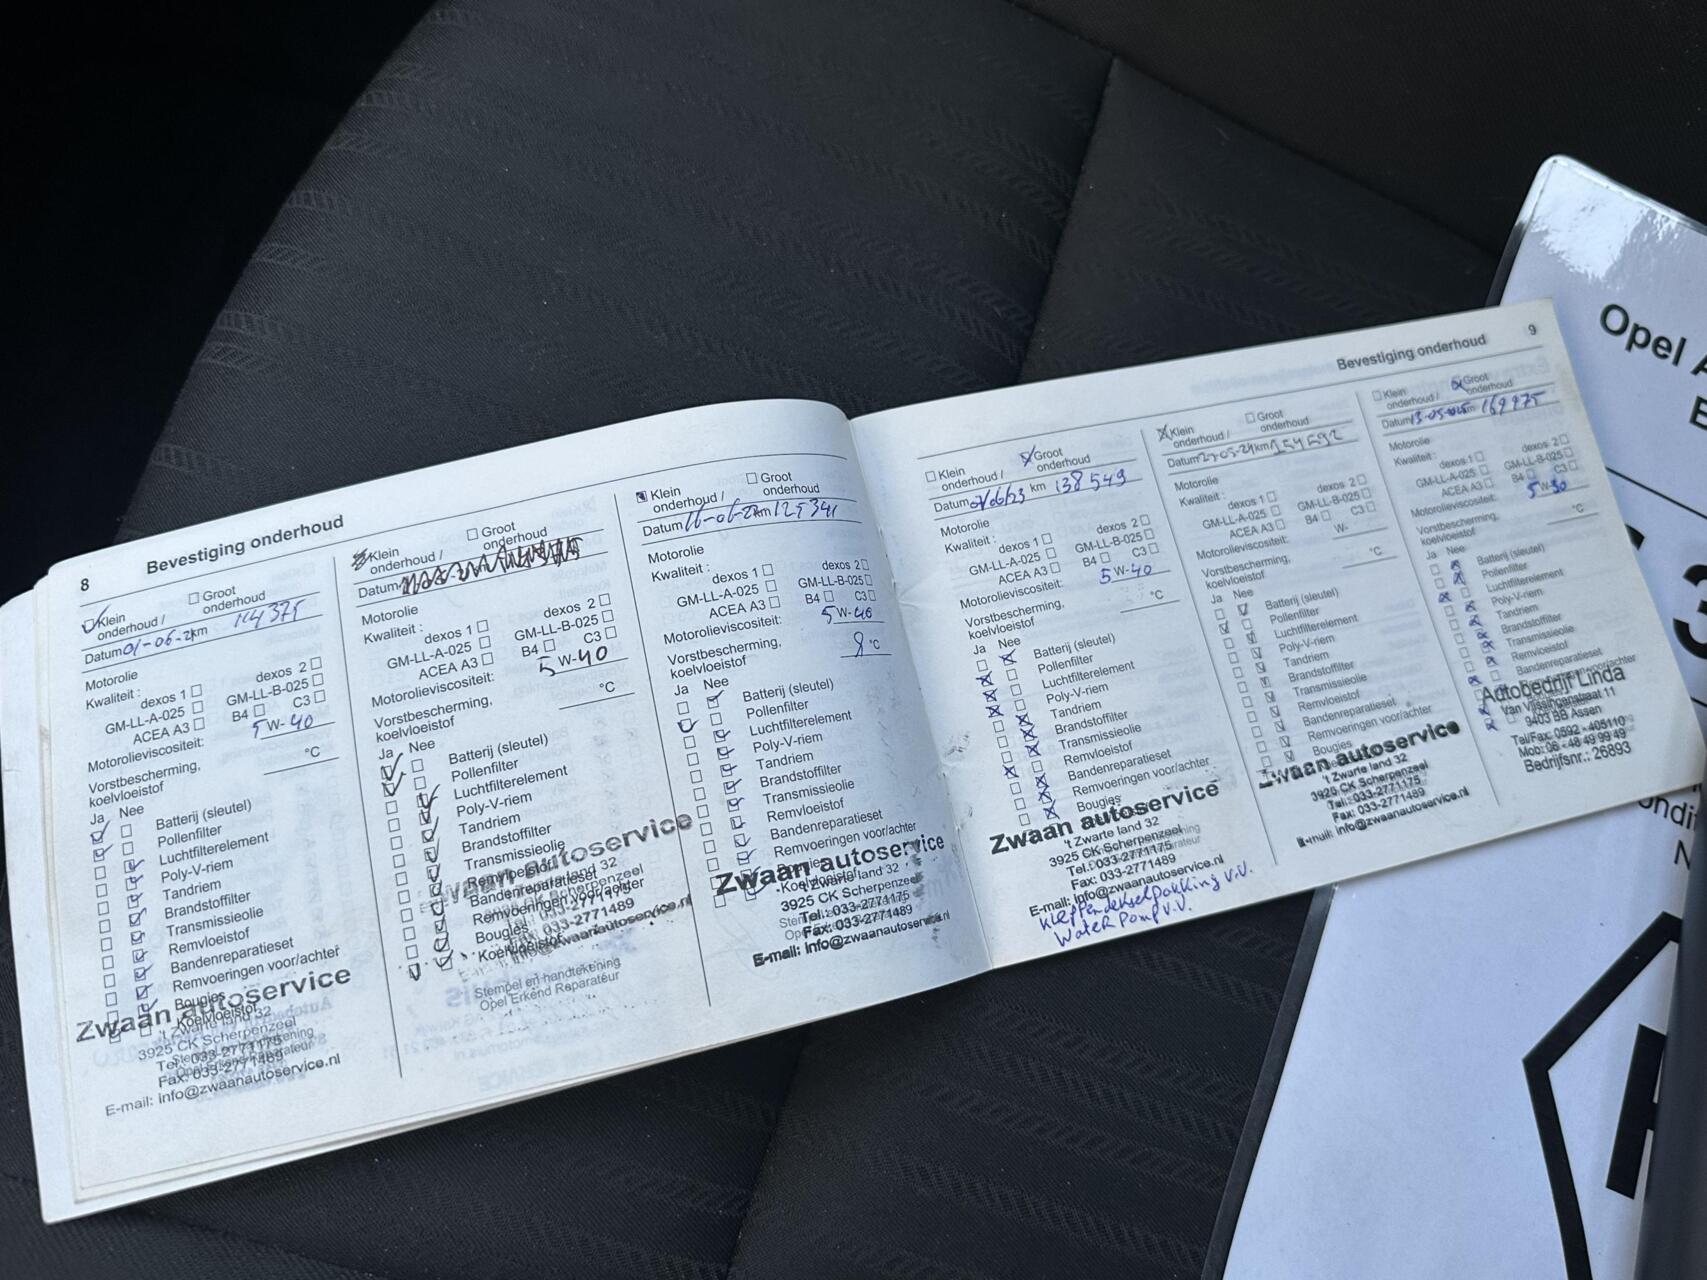 8
Bevestiging onderhoud
Klein onderhoud /
Groot onderhoud
Datum 01-06-21 km 114375
Motorolie
Kwaliteit :
dexos 1
dexos 2
GM-LL-A-025
GM-LL-B-025
ACEA A3
B4
C3
Motorolieviscositeit: 5 W- 40
Vorstbescherming, koelvloeistof °C
Ja Nee
Batterij (sleutel)
Pollenfilter
Luchtfilterelement
Poly-V-riem
Tandriem
Brandstoffilter
Transmissieolie
Remvloeistof
Bandenreparatieset
Remvoeringen voor/achter
Bougies
Koelvloeistof
Zwaan autoservice
't Zwarte land 32
3925 CK Scherpenzeel
Tel.: 033-2771175
Fax: 033-2771489
E-mail: info@zwaanautoservice.nl
Klein onderhoud /
Groot onderhoud
Datum
Motorolie
Kwaliteit :
dexos 1
dexos 2
GM-LL-A-025
GM-LL-B-025
ACEA A3
B4
C3
Motorolieviscositeit: 5 W- 40
Vorstbescherming, koelvloeistof °C
Ja Nee
Batterij (sleutel)
Pollenfilter
Luchtfilterelement
Poly-V-riem
Tandriem
Brandstoffilter
Transmissieolie
Remvloeistof
Bandenreparatieset
Remvoeringen voor/achter
Bougies
Koelvloeistof
Zwaan autoservice
't Zwarte land 32
3925 CK Scherpenzeel
Tel.: 033-2771175
Fax: 033-2771489
info@zwaanautoservice.nl
Stempel en handtekening
Opel Erkend Reparateur
Klein onderhoud /
Groot onderhoud
Datum 16-06-22 km 125341
Motorolie
Kwaliteit :
dexos 1
dexos 2
GM-LL-A-025
GM-LL-B-025
ACEA A3
B4
C3
Motorolieviscositeit: 5 W- 40
Vorstbescherming, koelvloeistof °C
Ja Nee
Batterij (sleutel)
Pollenfilter
Luchtfilterelement
Poly-V-riem
Tandriem
Brandstoffilter
Transmissieolie
Remvloeistof
Bandenreparatieset
Remvoeringen voor/achter
Bougies
Koelvloeistof
Zwaan autoservice
't Zwarte land 32
3925 CK Scherpenzeel
Tel.: 033-2771175
Fax: 033-2771489
E-mail: info@zwaanautoservice.nl
Bevestiging onderhoud
9
Klein onderhoud /
Groot onderhoud
Datum km 138549
Motorolie
Kwaliteit :
dexos 1
dexos 2
GM-LL-A-025
GM-LL-B-025
ACEA A3
B4
C3
Motorolieviscositeit: 5 W- 40
Vorstbescherming, koelvloeistof °C
Ja Nee
Batterij (sleutel)
Pollenfilter
Luchtfilterelement
Poly-V-riem
Tandriem
Brandstoffilter
Transmissieolie
Remvloeistof
Bandenreparatieset
Remvoeringen voor/achter
Bougies
Zwaan autoservice
't Zwarte land 32
3925 CK Scherpenzeel
Tel.: 033-2771175
Fax: 033-2771489
E-mail: info@zwaanautoservice.nl
Kleppendekselpakking v.v.
Waterpomp v.v.
Klein onderhoud /
Groot onderhoud
Datum km 154592
Motorolie
Kwaliteit :
dexos 1
dexos 2
GM-LL-A-025
GM-LL-B-025
ACEA A3
B4
C3
Motorolieviscositeit: W-
Vorstbescherming, koelvloeistof °C
Ja Nee
Batterij (sleutel)
Pollenfilter
Luchtfilterelement
Poly-V-riem
Tandriem
Brandstoffilter
Transmissieolie
Remvloeistof
Bandenreparatieset
Remvoeringen voor/achter
Bougies
Zwaan autoservice
't Zwarte land 32
3925 CK Scherpenzeel
Tel.: 033-2771175
Fax: 033-2771489
info@zwaanautoservice.nl
Klein onderhoud /
Groot onderhoud
Datum 13-05-2025 km 169975
Motorolie
Kwaliteit :
dexos 1
dexos 2
GM-LL-A-025
GM-LL-B-025
ACEA A3
B4
C3
Motorolieviscositeit: 5 W- 30
Vorstbescherming, koelvloeistof °C
Ja Nee
Batterij (sleutel)
Pollenfilter
Luchtfilterelement
Poly-V-riem
Tandriem
Brandstoffilter
Transmissieolie
Remvloeistof
Bandenreparatieset
Autobedrijf Linda
Van Vlissingenstraat 11
9403 BB Assen
Tel/Fax: 0592 - 405110
Mob: 06 - 48 49 99 49
Bedrijfsnr.: 26893
Opel